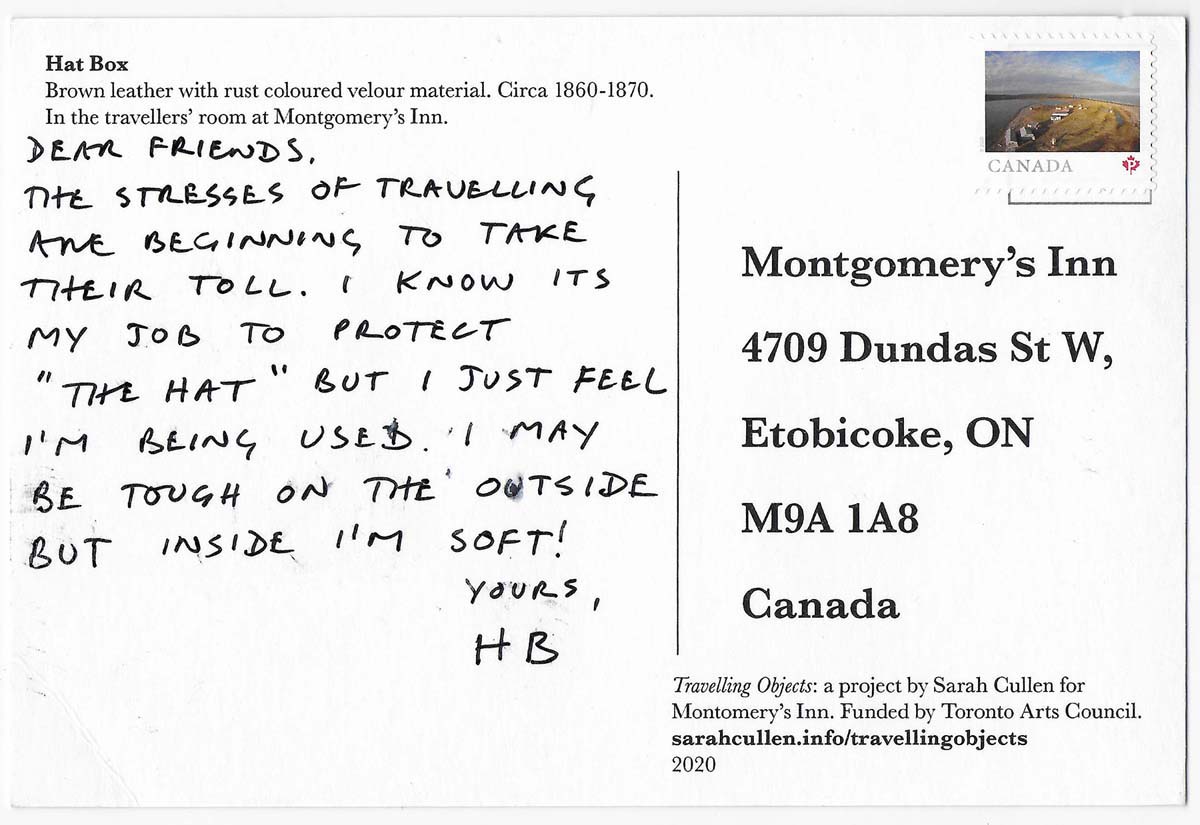 Hat Box
Brown leather with rust coloured velour material. Circa 1860-1870.
In the travellers' room at Montgomery's Inn.
DEAR FRIENDS,
THE STRESSES OF TRAVELLING
ARE BEGINNING TO TAKE
THEIR TOLL. I KNOW ITS
MY JOB TO PROTECT
"THE HAT" BUT I JUST FEEL
I'M BEING USED. I MAY
BE TOUGH ON THE OUTSIDE
BUT INSIDE I'M SOFT!
YOURS,
HB
CANADA
P
Montgomery's Inn
4709 Dundas St W,
Etobicoke, ON
M9A 1A8
Canada
Travelling Objects: a project by Sarah Cullen for
Montomery's Inn. Funded by Toronto Arts Council.
sarahcullen.info/travellingobjects
2020